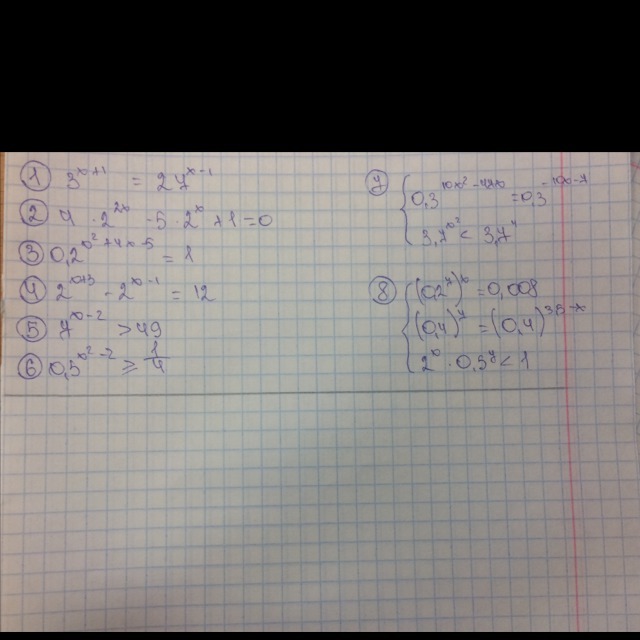 ① 3^(x+1) = 27^(x-1)
② 4 · 2^(2x) - 5 · 2^x + 1 = 0
③ 0,2^(x²+4x-5) = 1
④ 2^(x+3) - 2^(x-1) = 12
⑤ 7^(x-2) > 49
⑥ 0,5^(x²-2) ≥ 1/4
⑦ {
= 0,3^(-10x-7)
3,7^(x²) < 3,7^4
⑧ { (0,2^y)^x = 0,008
(0,4)^y = (0,4)^(3,5-x)
2^x · 0,5^y < 1